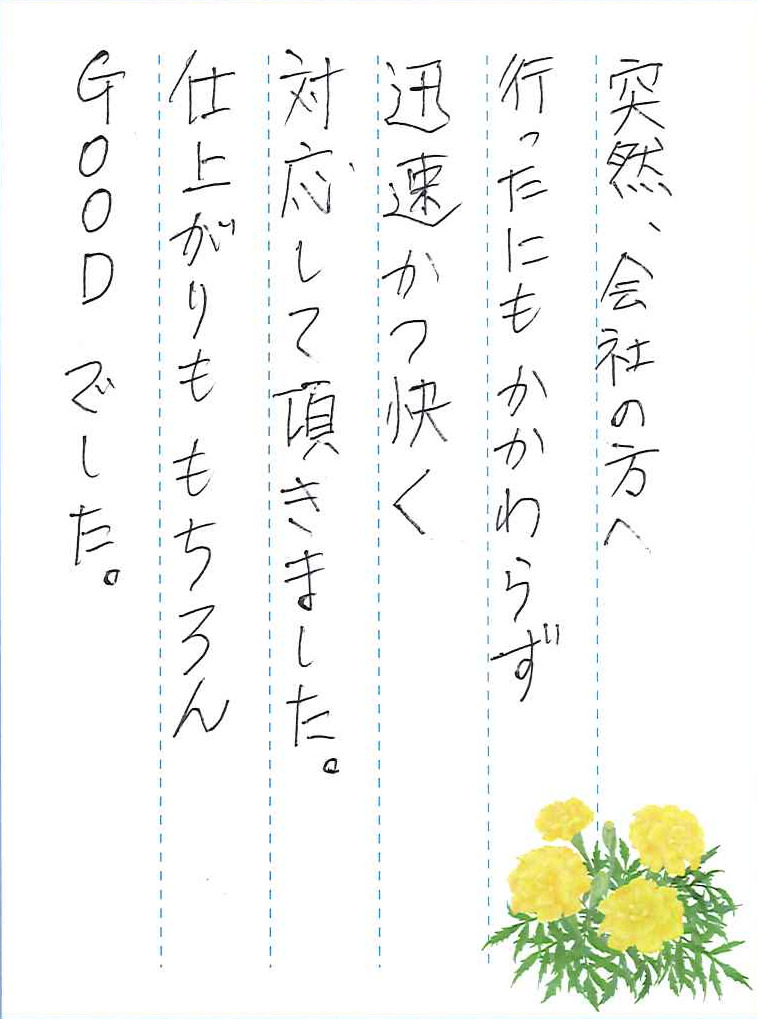 突然、会社の方へ
行ったにもかかわらず
迅速かつ快く
対応して頂きました。
仕上がりももちろん
GOODでした。